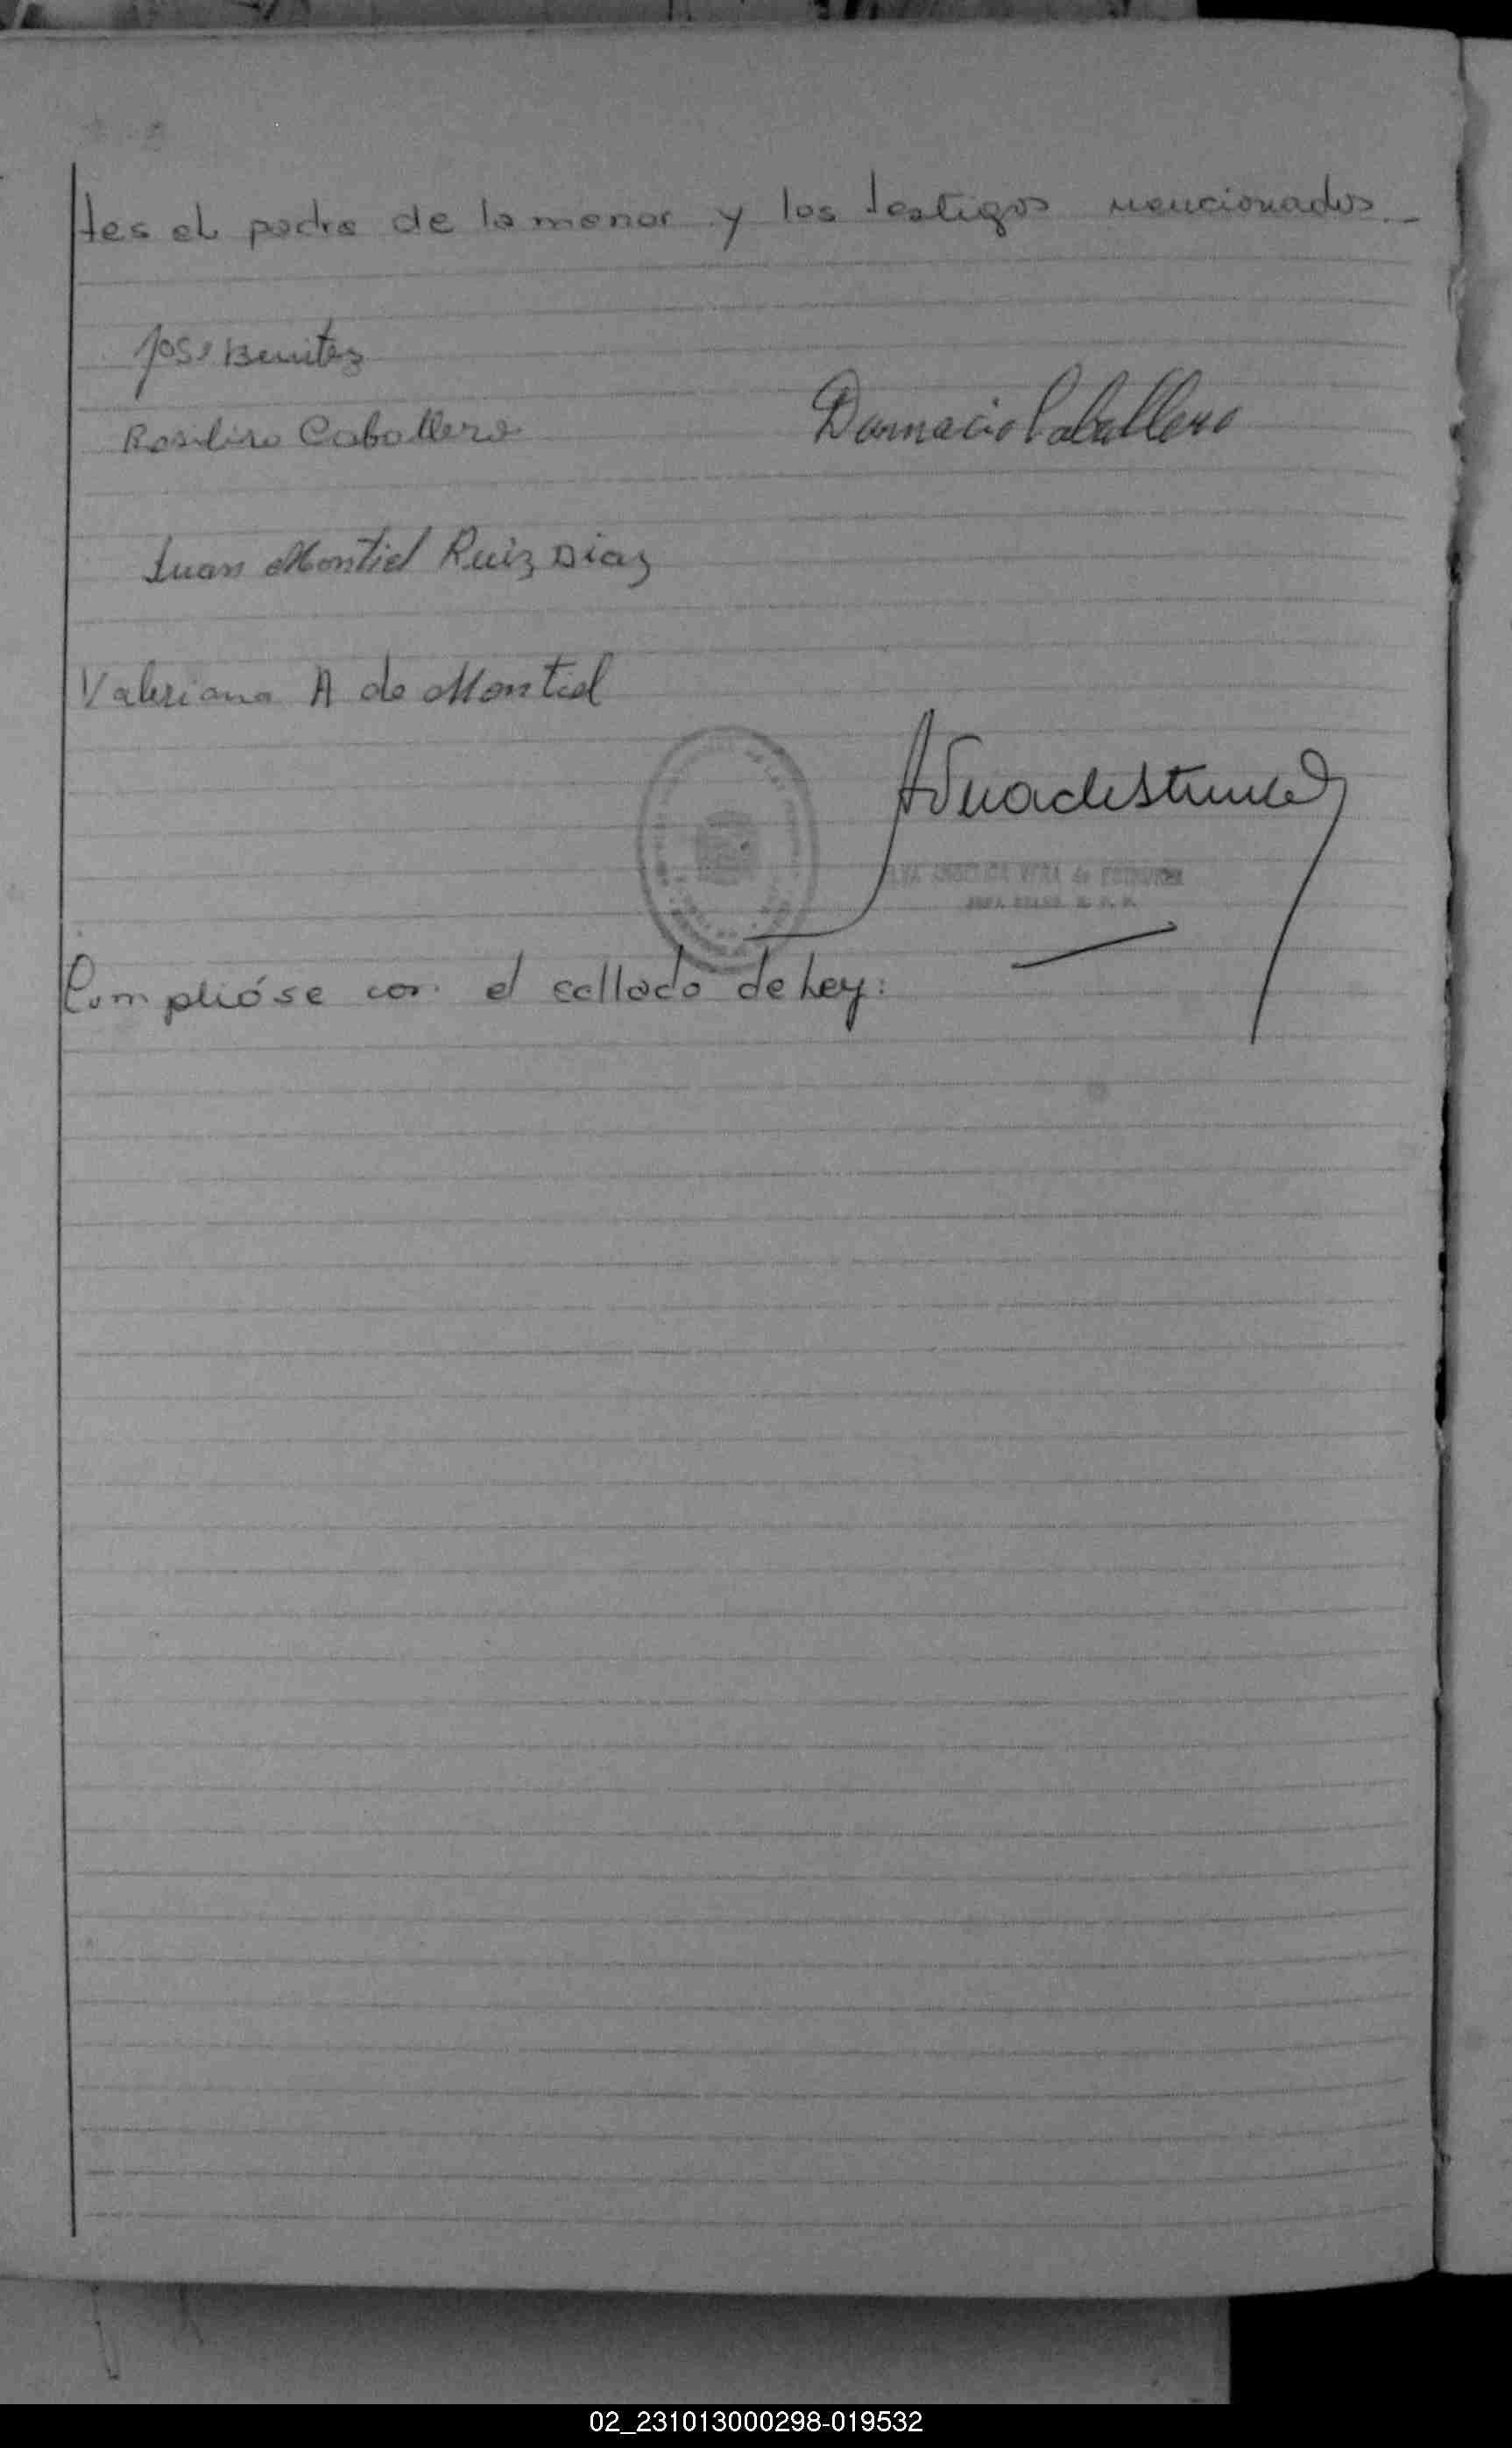 tes el padre de la menor y los testigos mencionados._
José Benitez
Caballero
Damacio Caballero
Juan Montiel Ruiz Diaz
Valeriana A de Montiel
VERA de
Cumplióse con el sellado de Ley:
02_231013000298-019532